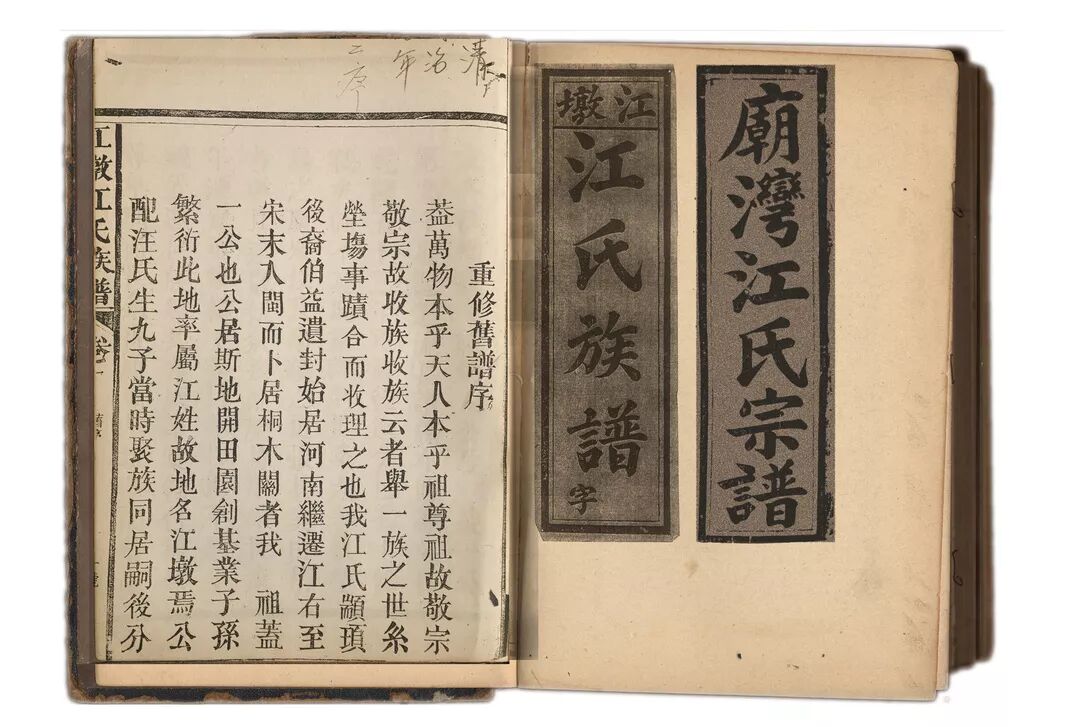 廟灣江氏宗譜
江墩
江氏族譜
字
清
治
年
二序
重修舊譜序
葢萬物本乎天人本乎祖尊祖故敬宗
敬宗故收族收族云者舉一族之世糸
塋塲事蹟合而收理之也我江氏顓頊
後裔伯益遺封始居河南繼遷江右至
宋末入閩而卜居桐木關者我 祖蓋
一公也公居斯地開田園創基業子孫
繁衍此地率屬江姓故地名江墩焉公
配汪氏生九子當時聚族同居嗣後分
江墩江氏族譜 卷一